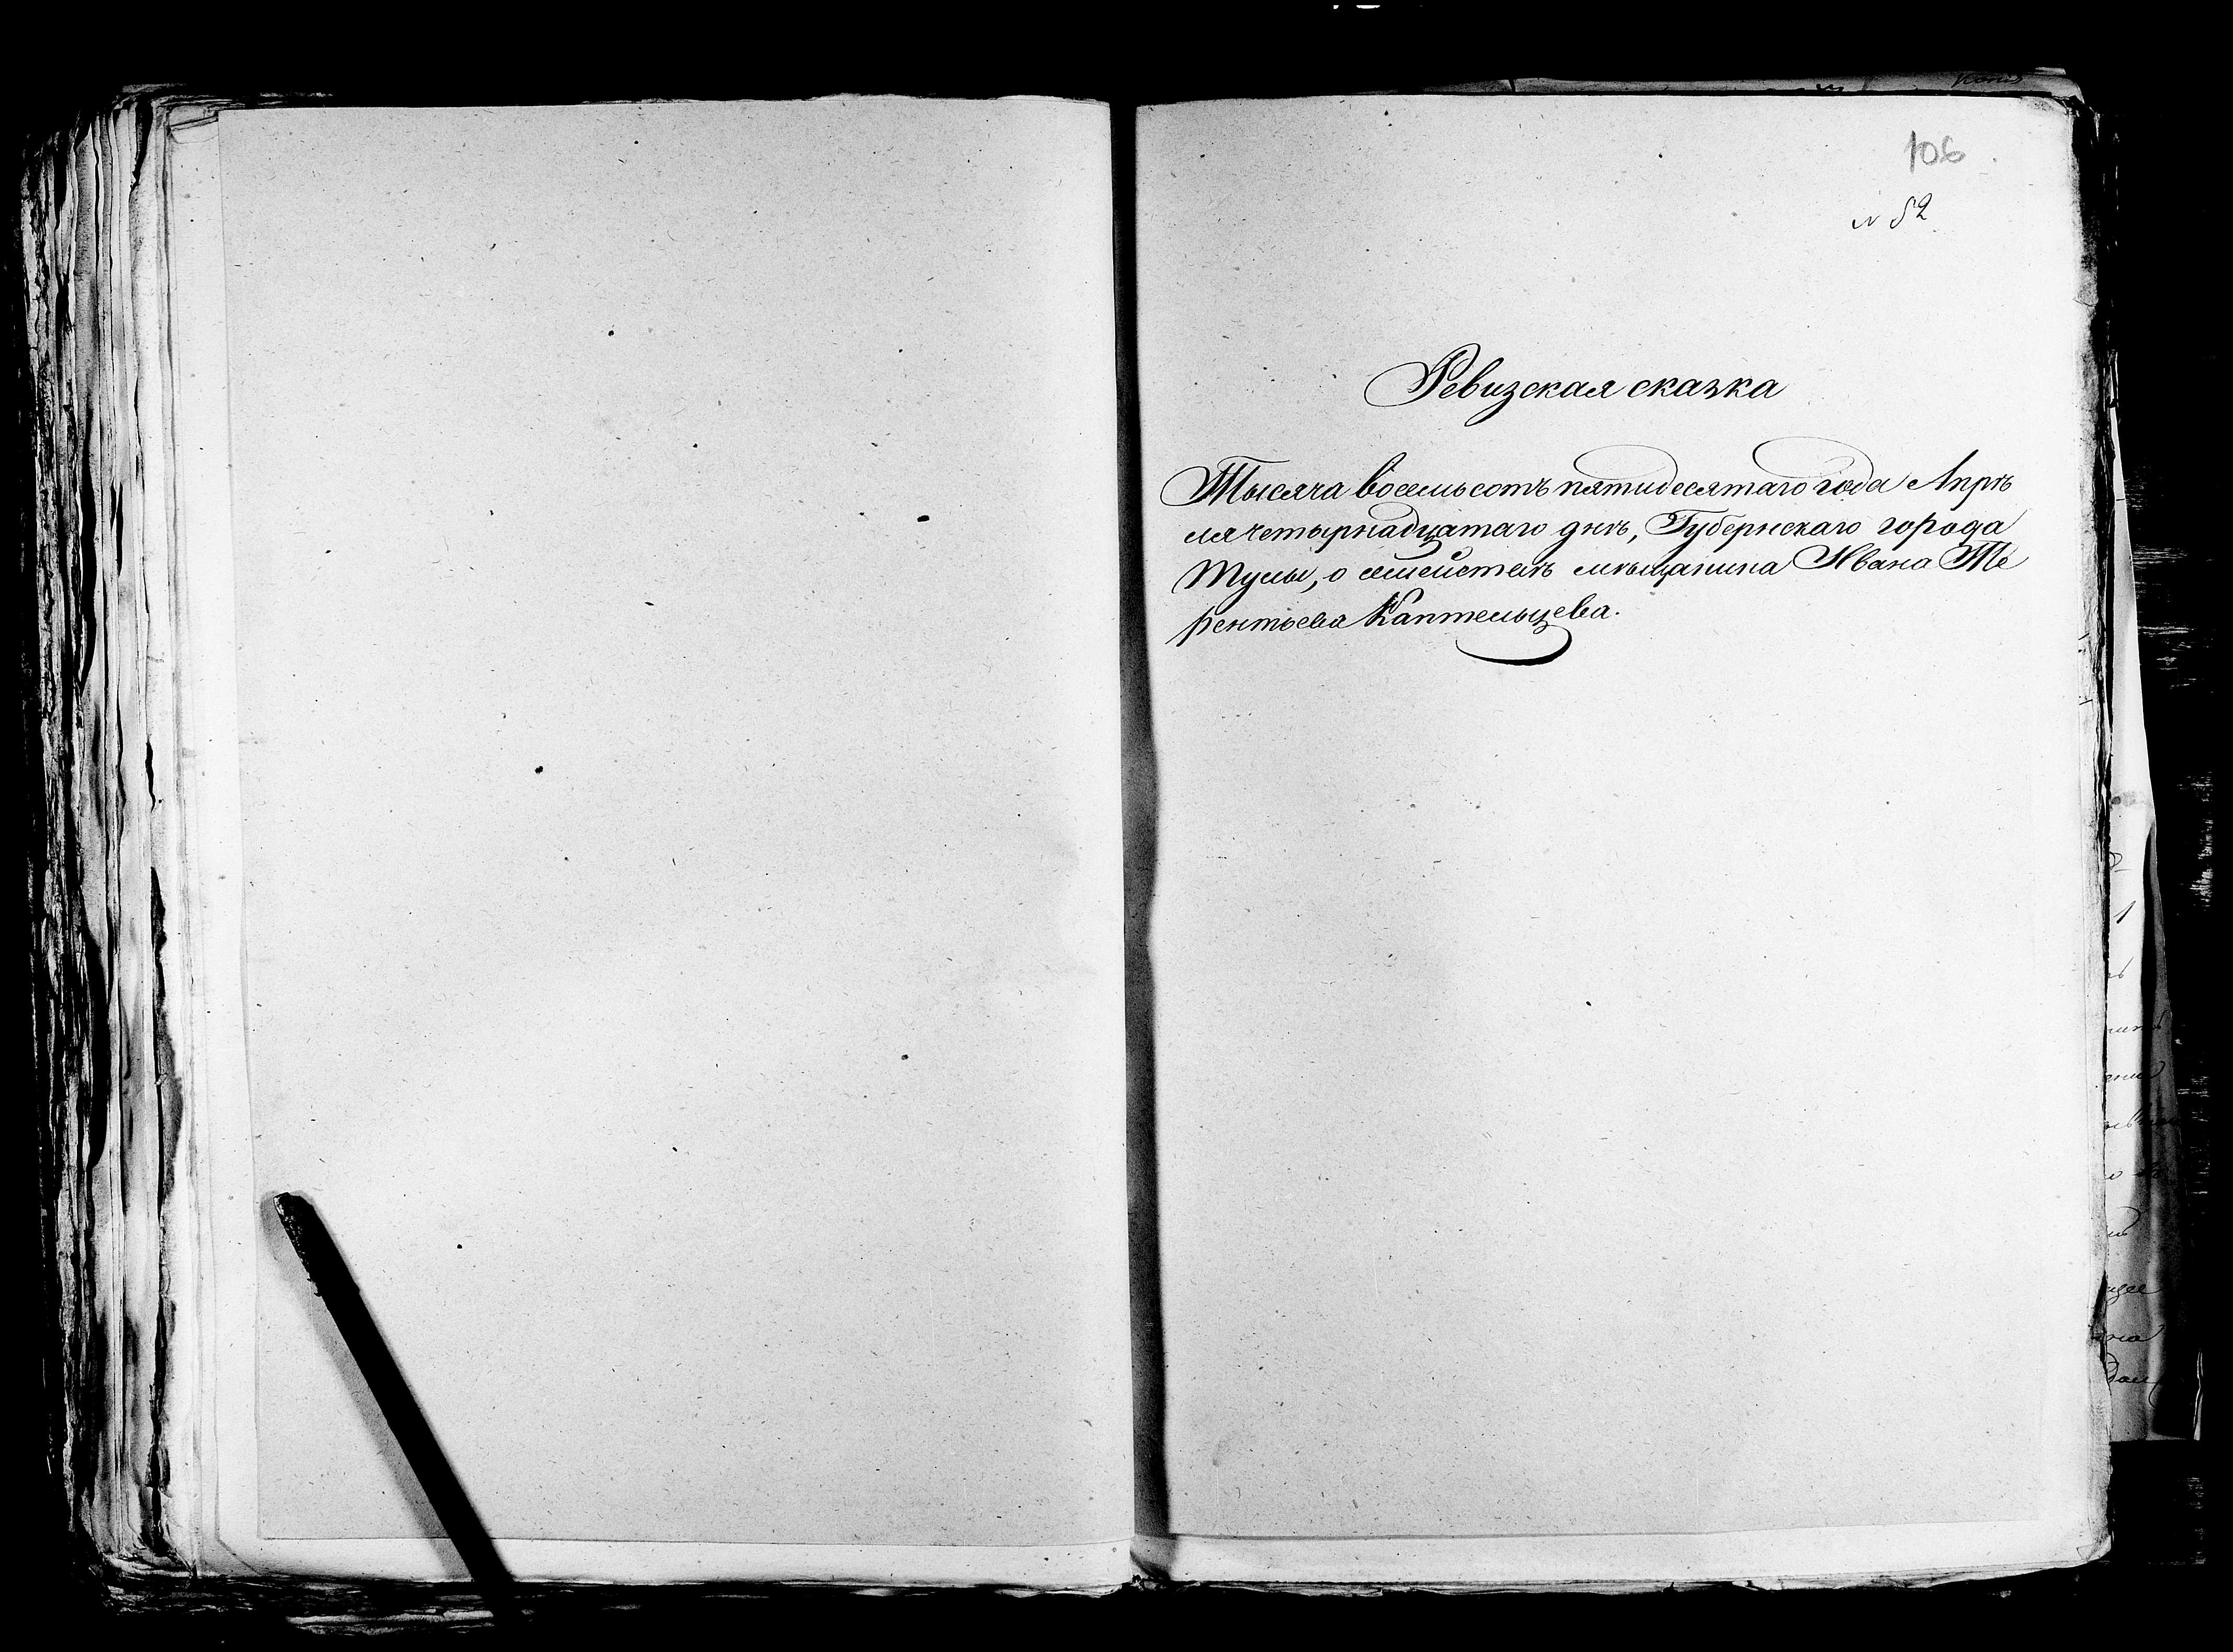 106
N 52
Ревизская сказка
Тысяча восемьсотъ пятидесятаго года Апрѣ
ля четырнадцатаго дня, Губернскаго города
Тулы, о семействѣ мѣщанина Ивана Те
рентьева Каптельцева.